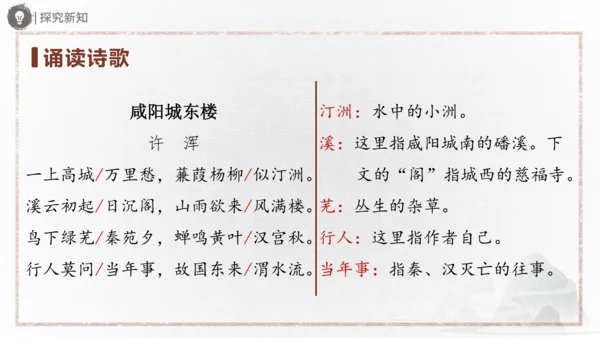 探究新知
诵读诗歌
咸阳城东楼
许 浑
一上高城/万里愁，蒹葭杨柳/似汀洲。
溪云初起/日沉阁，山雨欲来/风满楼。
鸟下绿芜/秦苑夕，蝉鸣黄叶/汉宫秋。
行人莫问/当年事，故国东来/渭水流。
汀洲：水中的小洲。
溪：这里指咸阳城南的磻溪。下
文的“阁”指城西的慈福寺。
芜：丛生的杂草。
行人：这里指作者自己。
当年事：指秦、汉灭亡的往事。